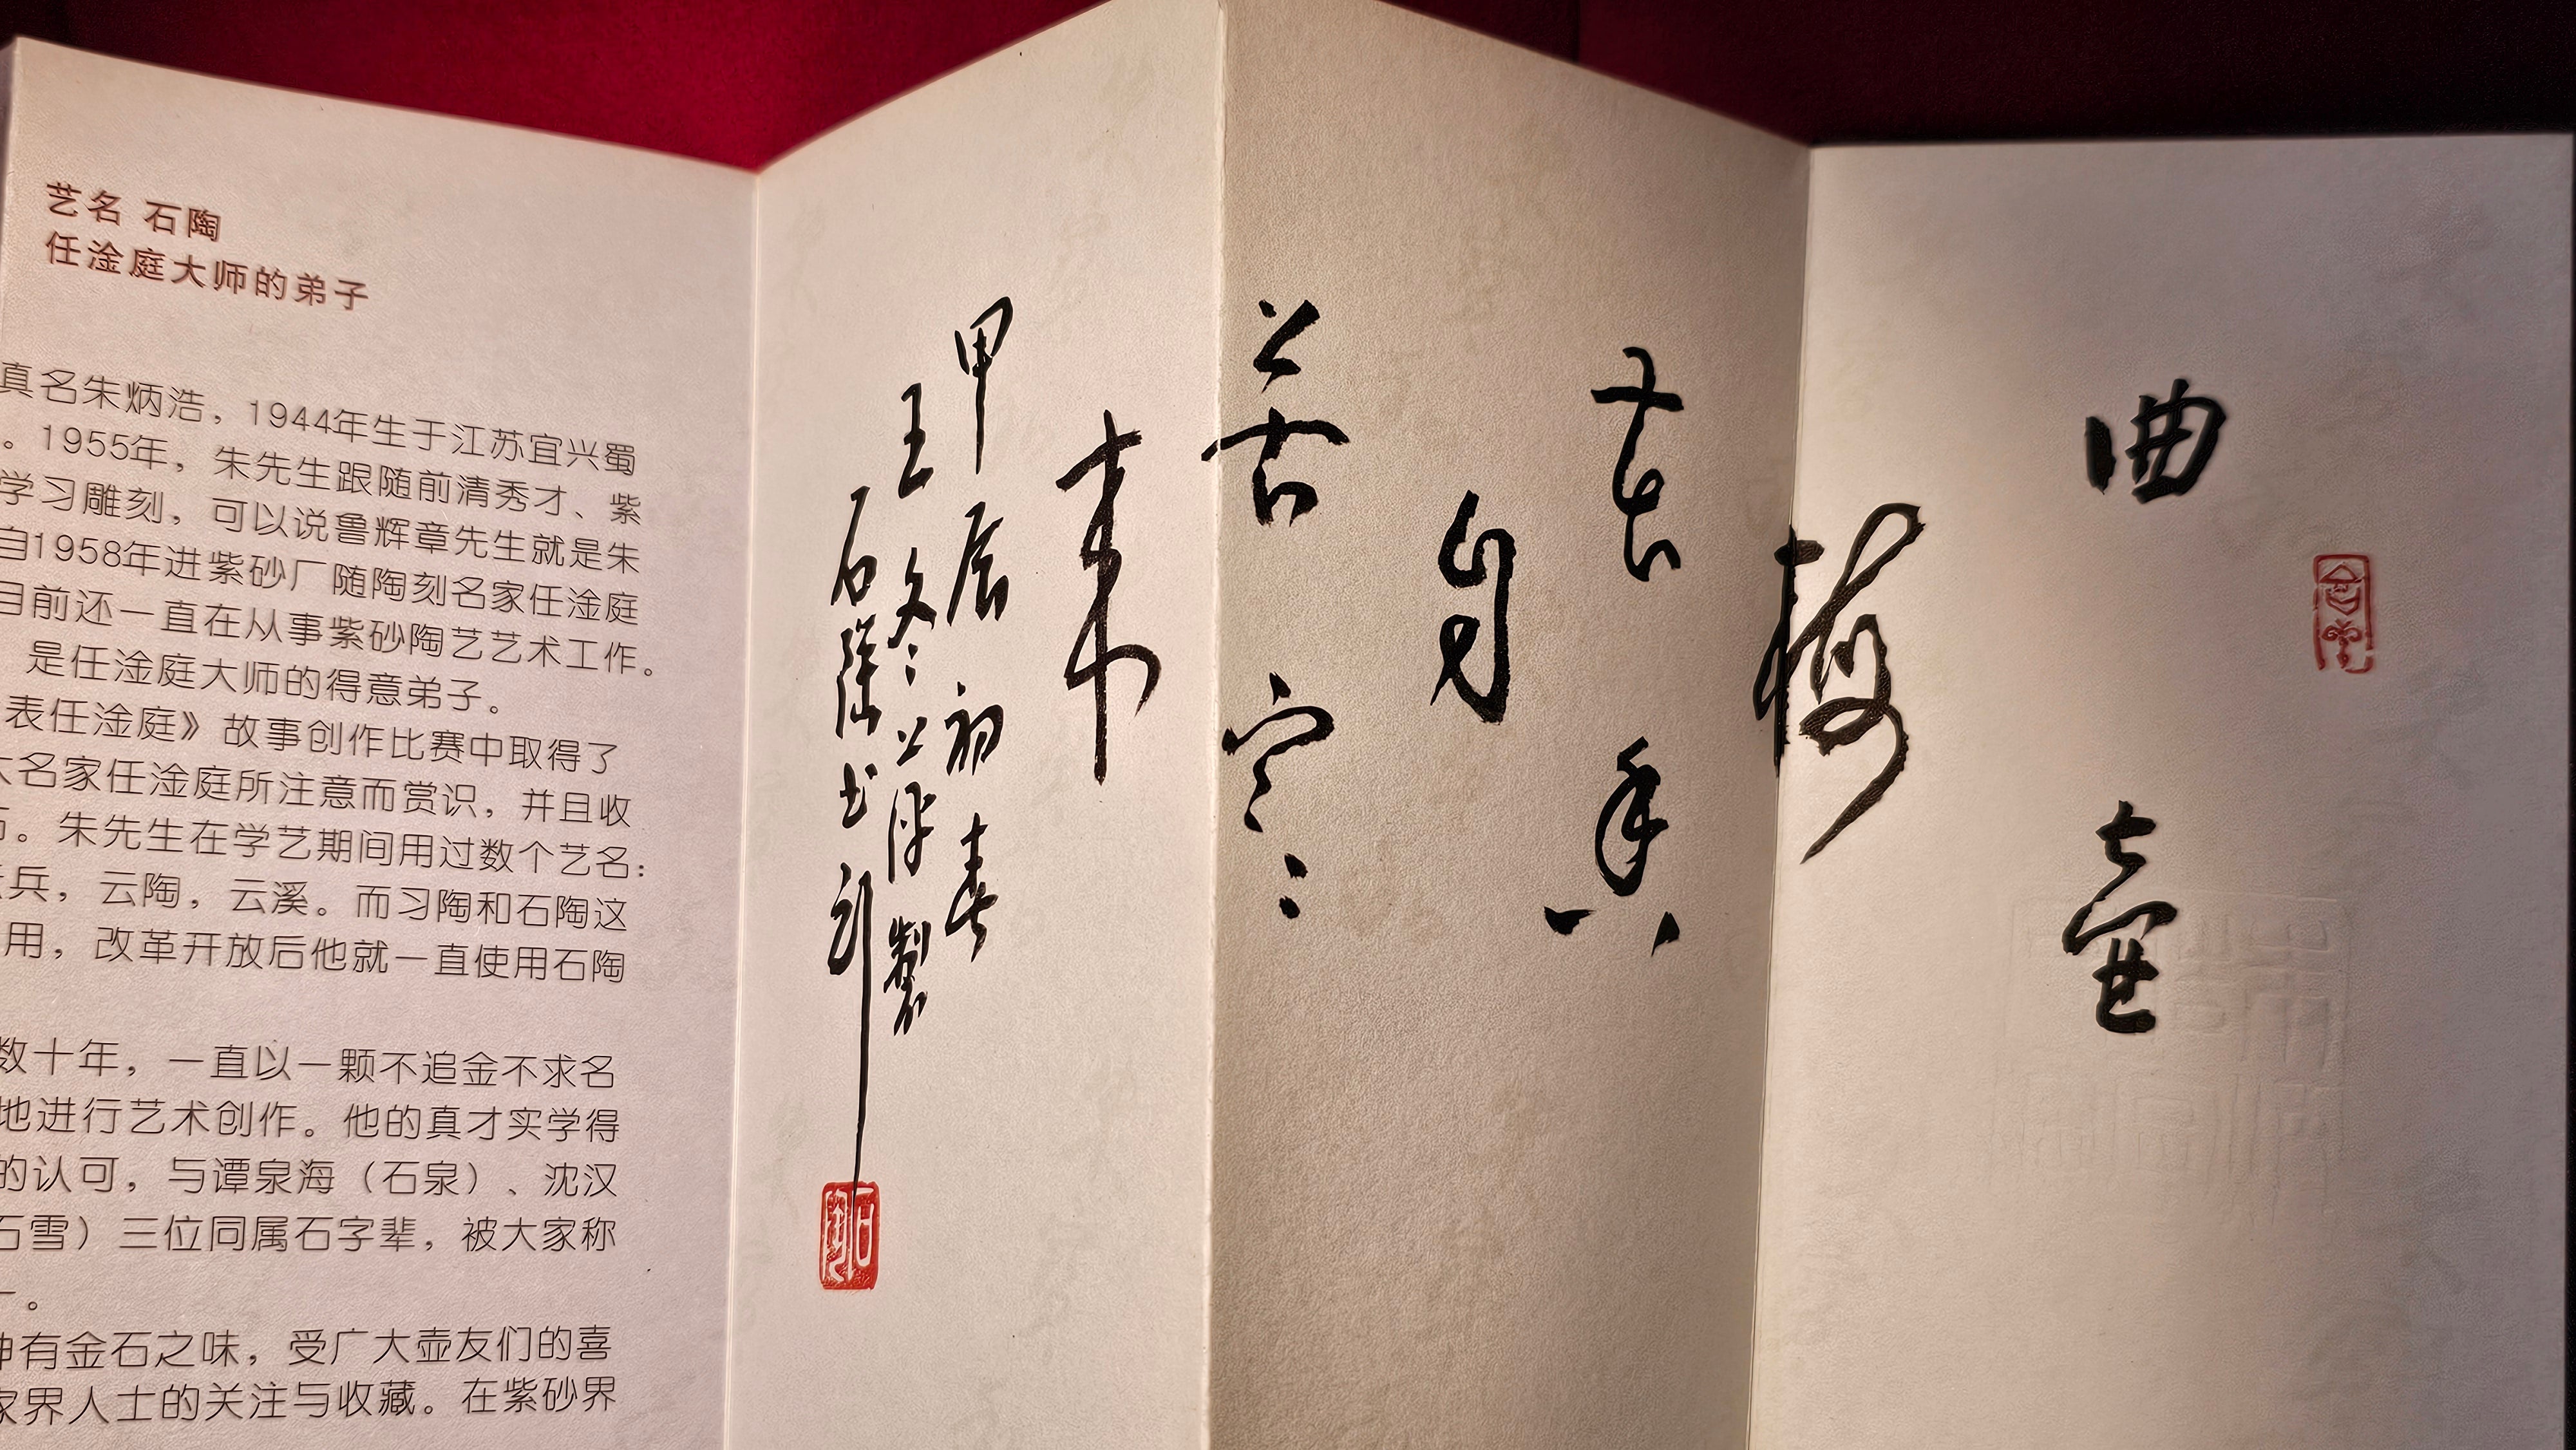 曲壶
梅
花香
自
苦寒
来
甲辰初春
王 製
石陶书刻
石陶
艺名 石陶
任淦庭大师的弟子
真名朱炳浩，1944年生于江苏宜兴蜀
。1955年，朱先生跟随前清秀才、紫
学习雕刻，可以说鲁辉章先生就是朱
自1958年进紫砂厂随陶刻名家任淦庭
目前还一直在从事紫砂陶艺艺术工作。
是任淦庭大师的得意弟子。
表任淦庭》故事创作比赛中取得了
大名家任淦庭所注意而赏识，并且收
。朱先生在学艺期间用过数个艺名：
兵，云陶，云溪。而习陶和石陶这
用，改革开放后他就一直使用石陶
数十年，一直以一颗不追金不求名
地进行艺术创作。他的真才实学得
的认可，与谭泉海（石泉）、沈汉
石雪）三位同属石字辈，被大家称
。
有金石之味，受广大壶友们的喜
家界人士的关注与收藏。在紫砂界